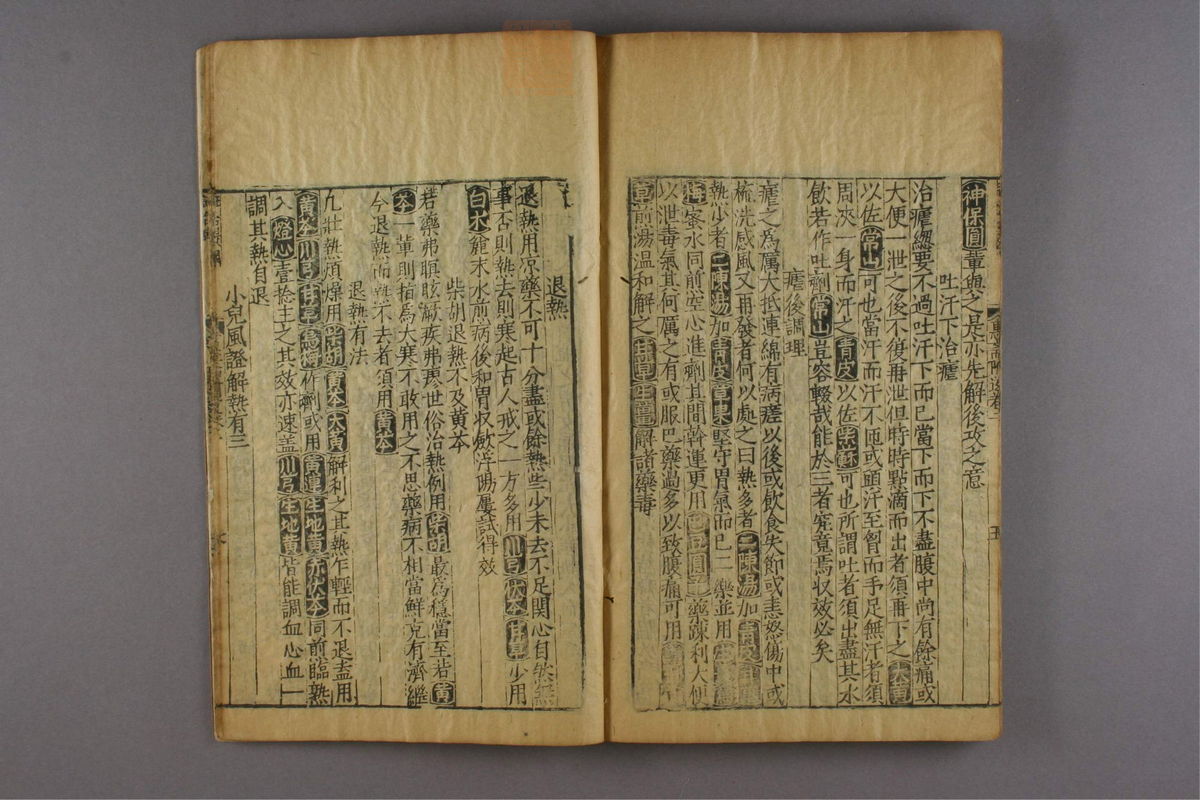 神保圓輩與之是亦先解後攻之意
吐汗下治瘧
治瘧緫要不過吐汗下而已當下而下不盡腹中尚有餘痛或
大便一泄之後不復再泄但時時點滴而出者須再下之大黄
以佐常山可也當汗而汗不匝或頭汗至胷而手足無汗者須
周浹一身而汗之青皮以佐柴蘇可也所謂吐者須出盡其水
飲若作吐劑常山豈容輟哉能於三者窮竟焉収效必矣
瘧後調理
瘧之爲厲大抵連綿有病瘥以後或飲食失節或恚怒傷中或
梳洗感風又再發者何以處之曰熱多者二陳湯加青皮
熱少者二陳湯加青皮草果堅守胃氣而已二藥並用
梅蜜水同前空心進劑其間斡運更用藥踈利大便
以泄毒氣其何厲之有或服巴藥過多以致腹痛可用
草煎湯温和解之甘草生薑解諸藥毒
退熱
退熱用凉藥不可十分盡或餘熱些少未去不足関心自然無
事否則熱去則寒起古人戒之一方多用川芎茯苓甘草少用
白术麄末水煎病後和胃収斂浮陽屢試得效
柴胡退熱不及黄芩
若藥弗瞑眩厥疾弗瘳世俗治熱例用柴胡最爲穩當至若黄
芩一輩則指爲大寒不敢用之不思藥病不相當鮮克有濟繼
今退熱而熱不去者須用黄芩
退熱有法
凡壯熱煩燥用柴胡黄芩大黄解利之其熱乍輕而不退盍用
黄芩川芎甘草烏梅作劑或用黄連生地黄赤茯苓同煎臨熟
入燈心壹捻主之其效亦速盖川芎生地黄皆能調血心血一
調其熱自退
小兒風證解熱有三